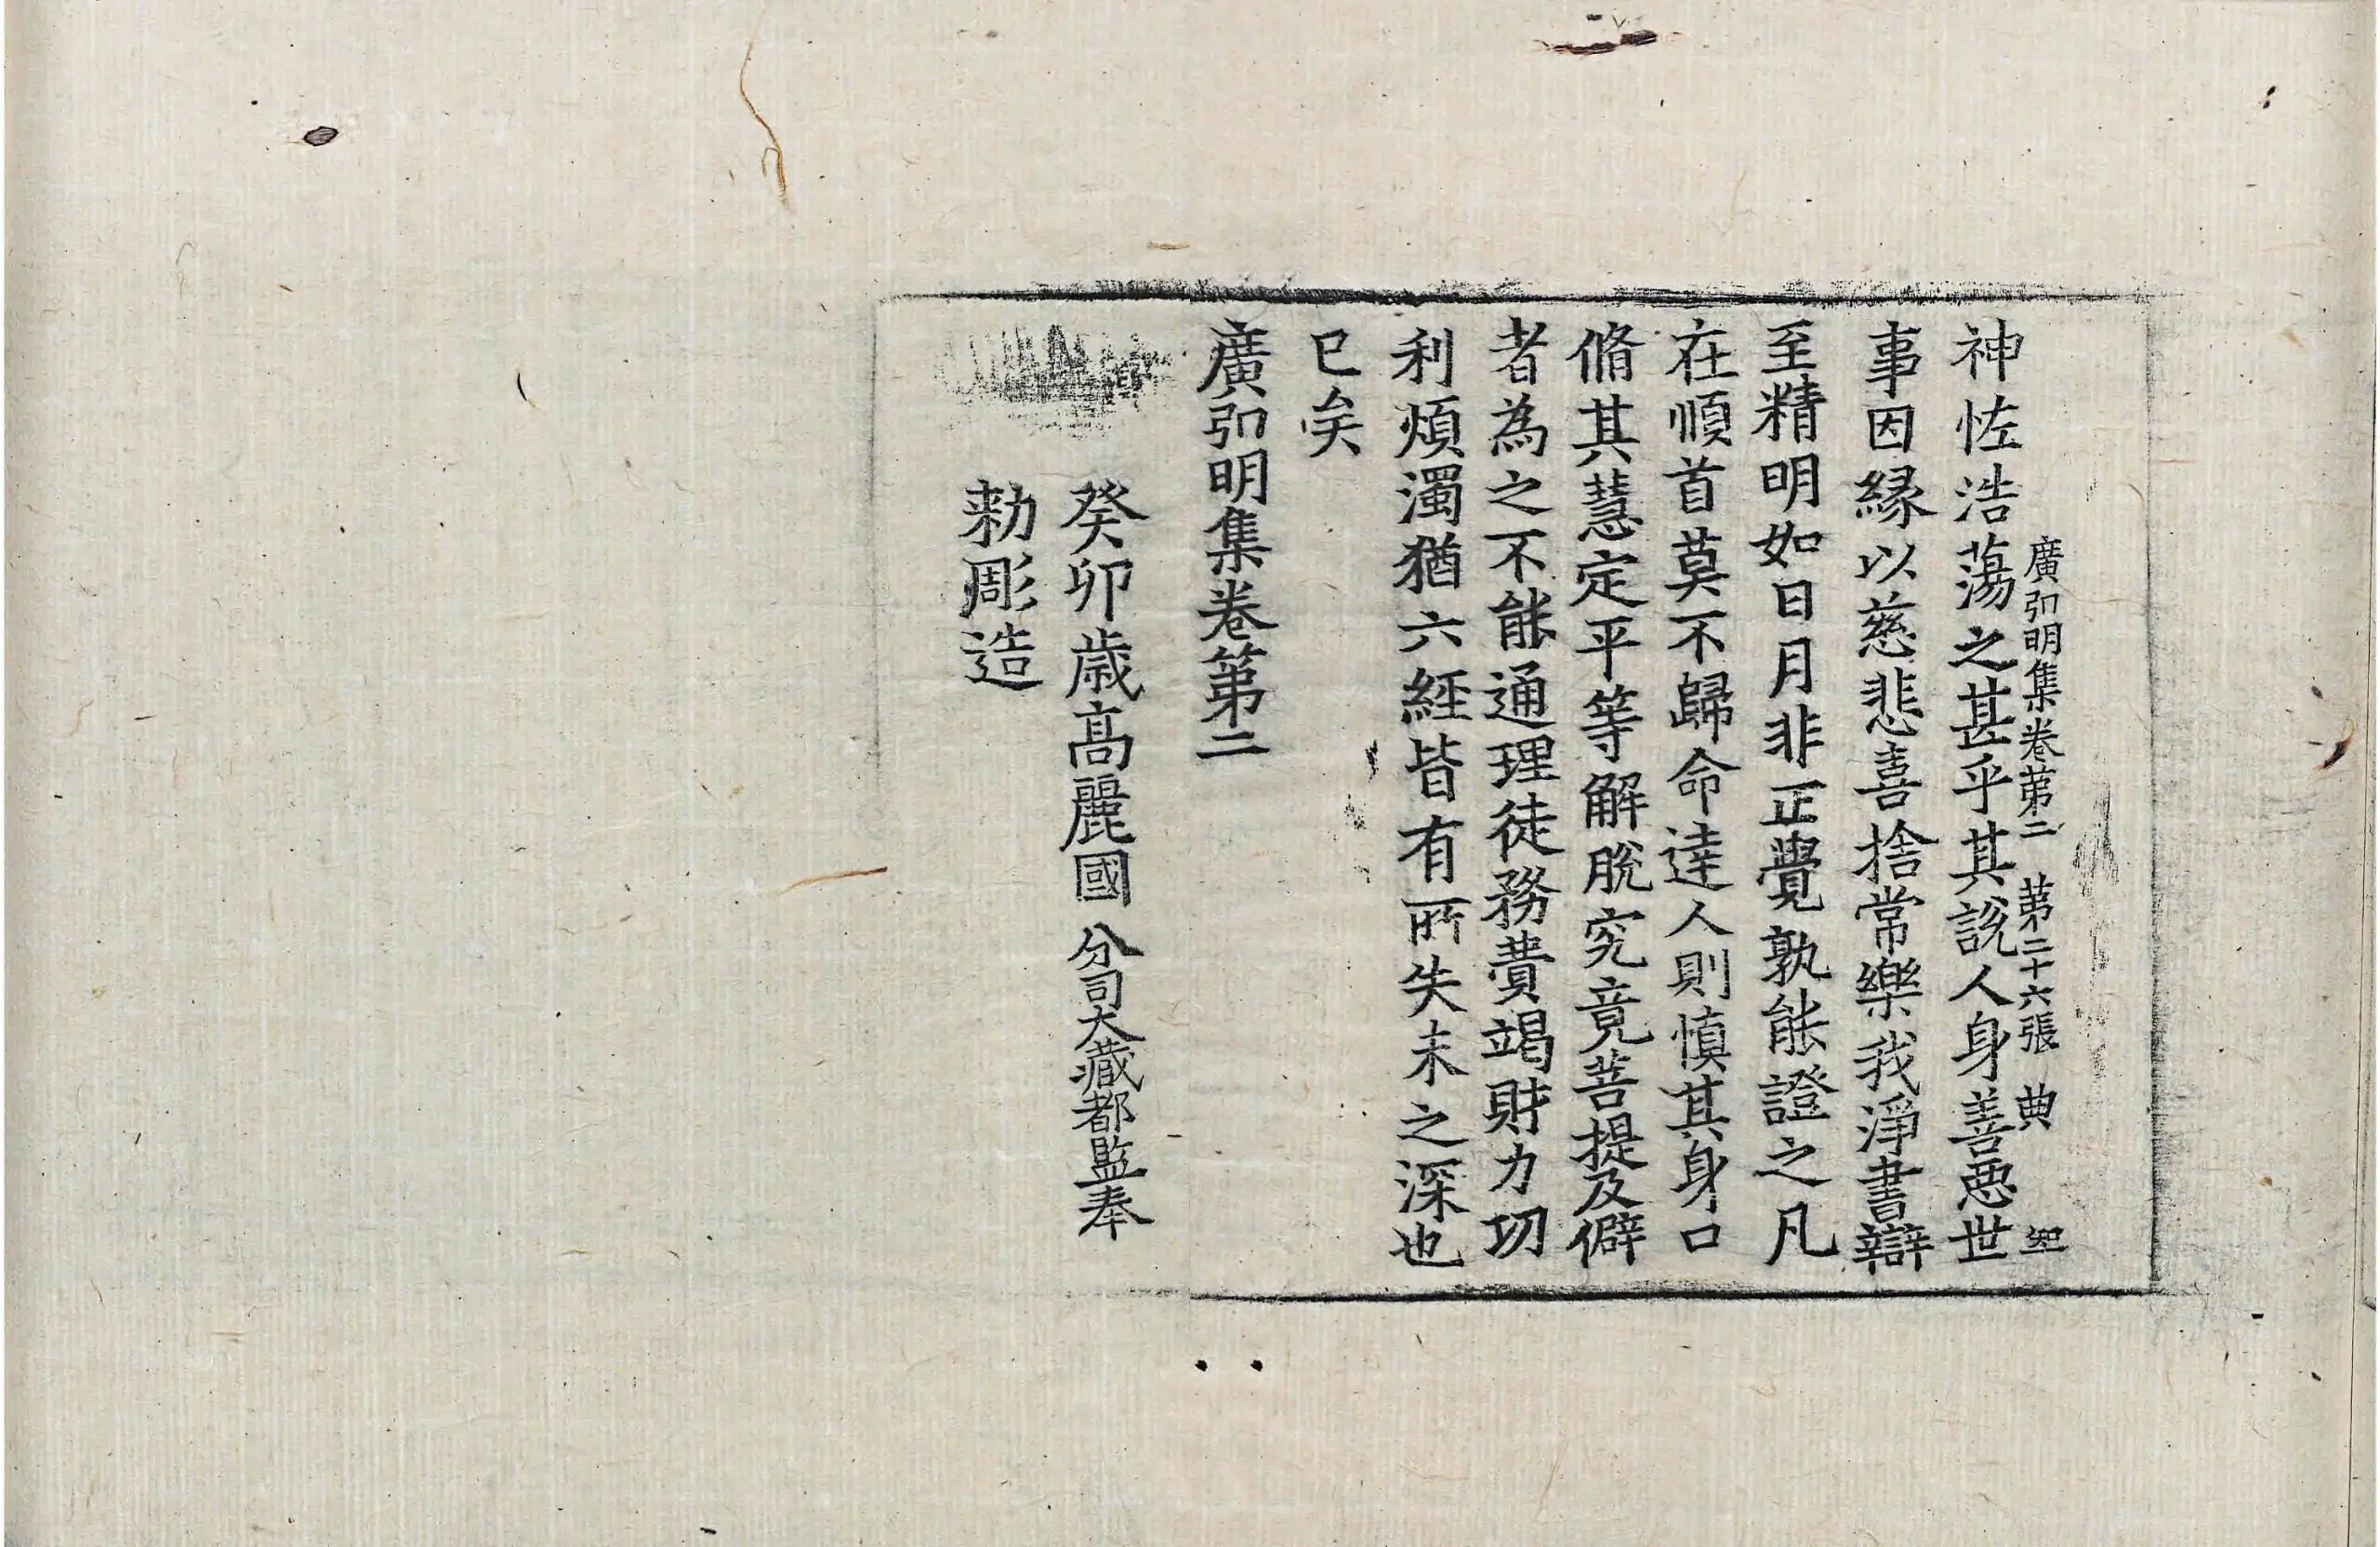 廣弘明集卷第二　第二十六張　典
神恠浩蕩之甚乎其說人身善惡世
事因緣以慈悲喜捨常樂我淨書辯
至精明如日月非正覺孰能證之凡
在順首莫不歸命達人則慎其身口
脩其慧定平等解脫究竟菩提及僻
者為之不能通理徒務費竭財力功
利煩濁猶六經皆有所失未之深也
已矣
廣弘明集卷第二
癸卯歲高麗國分司大藏都監奉
勅彫造